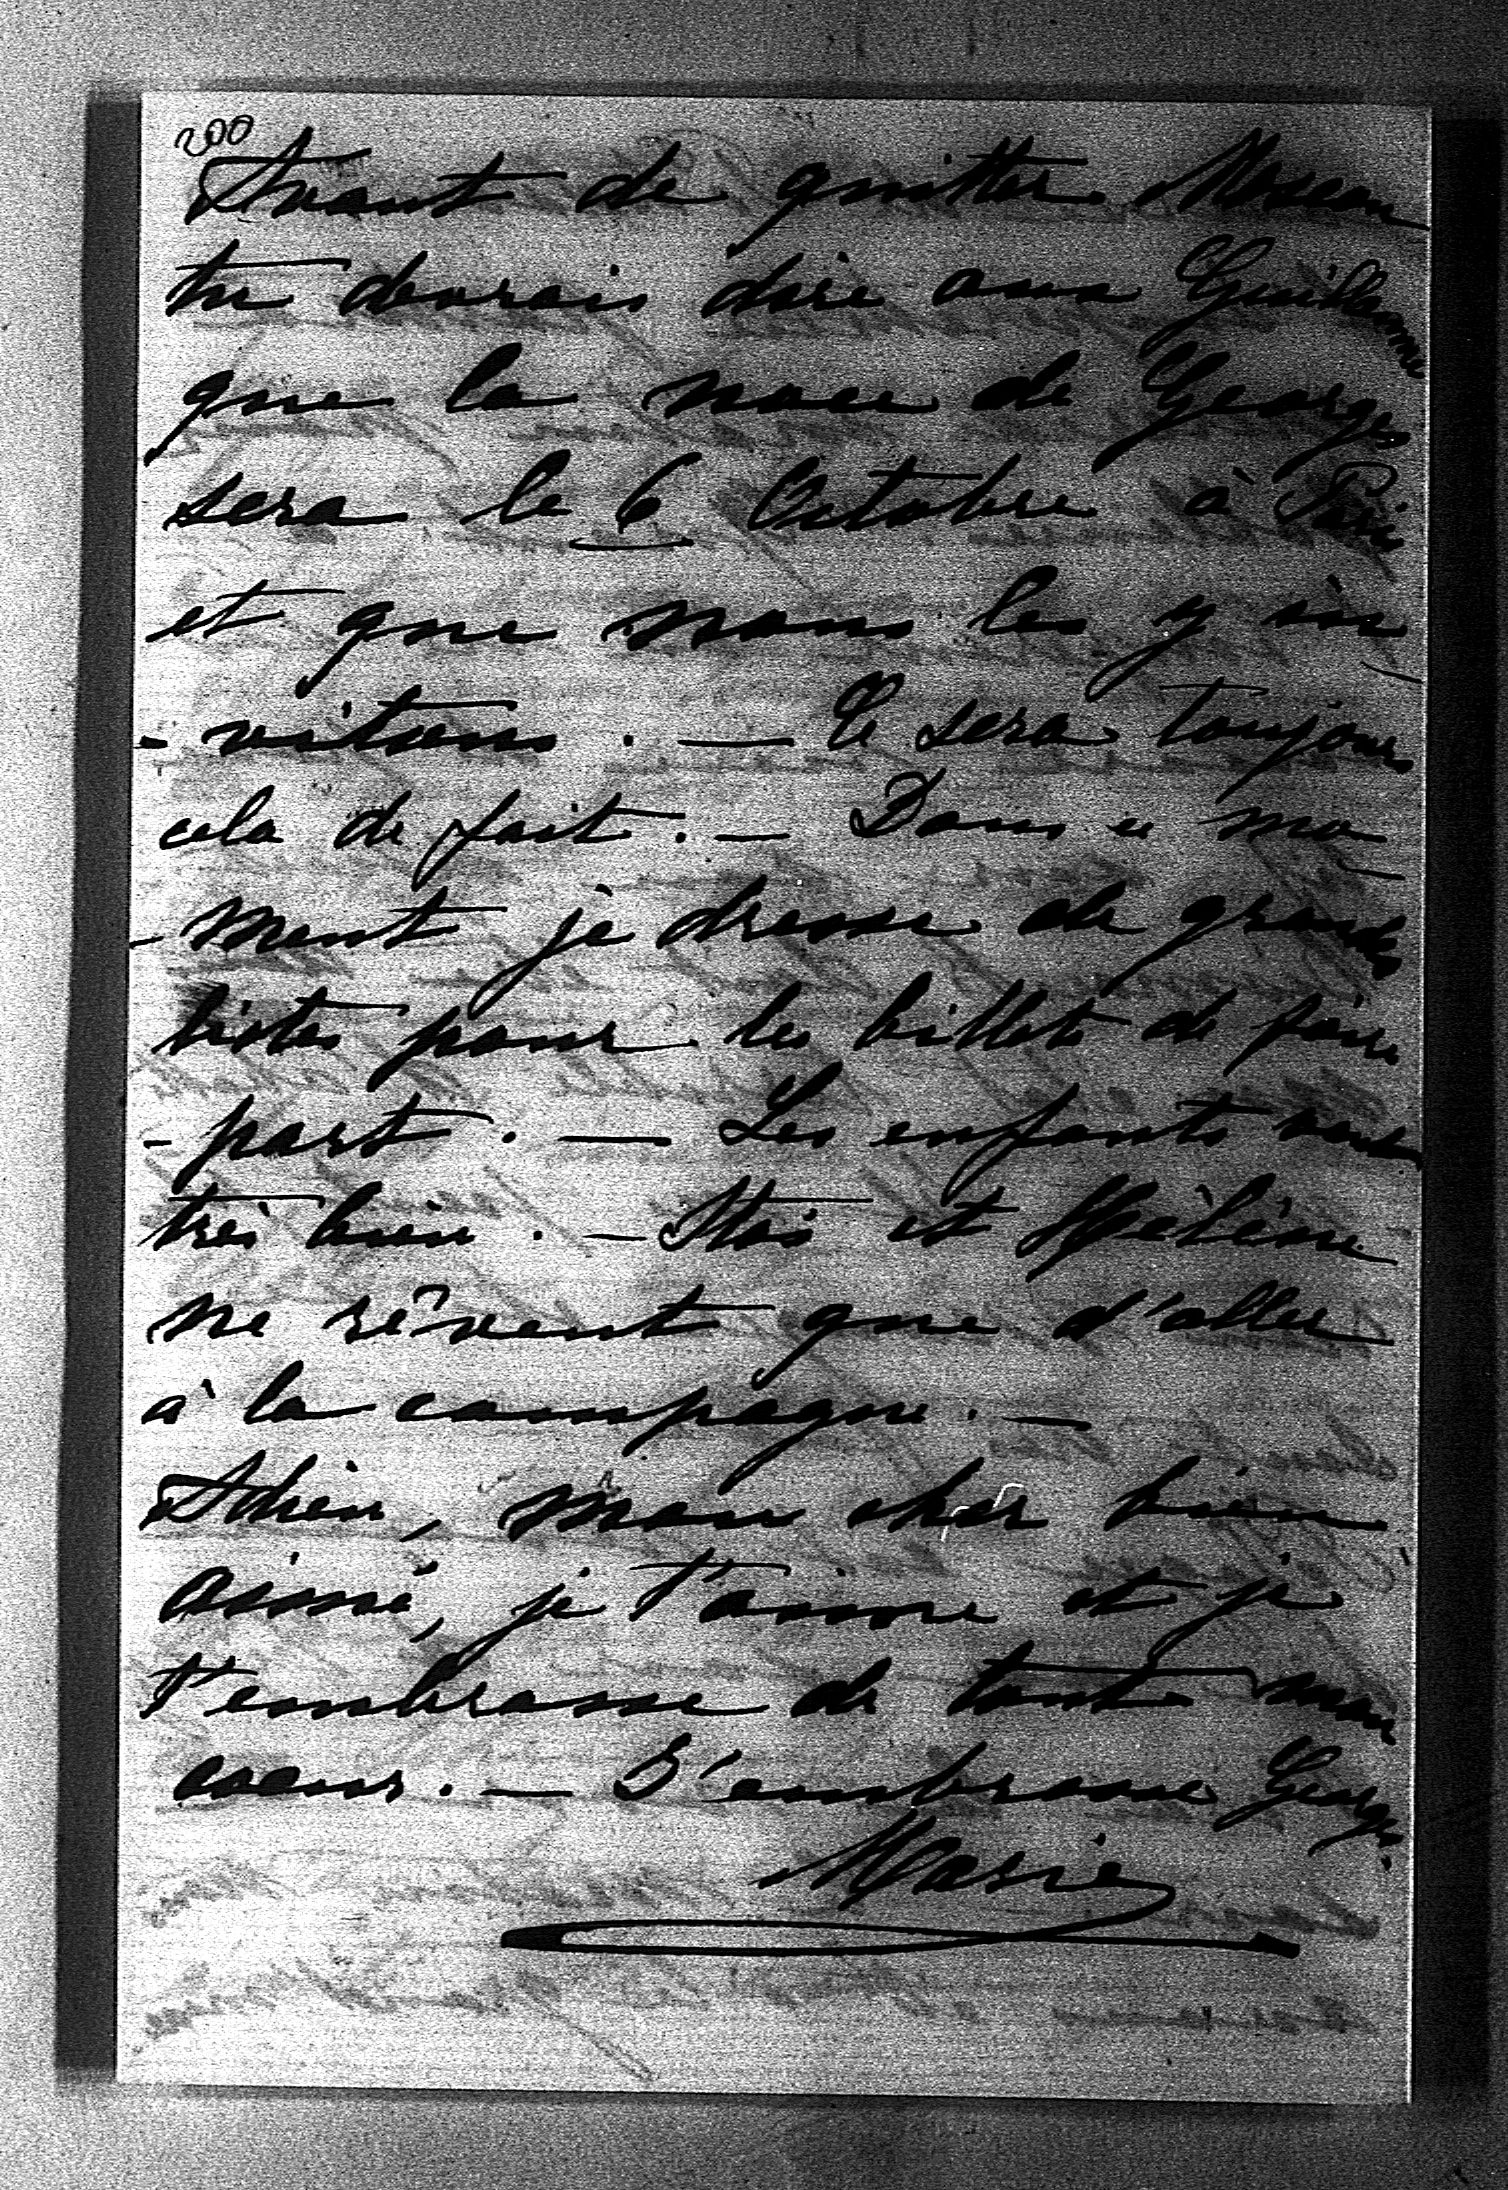 200
Avant de quitter Moscou
tu devrais dire aux Guillaume
que la noce de Georges
sera le 6 Octobre à Paris
et que nous les y in
- vitons . — Ce sera toujours
cela de fait . — Dans ce mo
- ment je dresse de grandes
listes pour les billets de faire
- part . — Les enfants vont
très bien . — Stas et Hélène
ne rêvent que d'aller
à la campagne . —
Adieu, mon cher bien
aimé, je t'aime et je
t'embrasse de tout mon
cœur . — J'embrasse Georges.
Marie